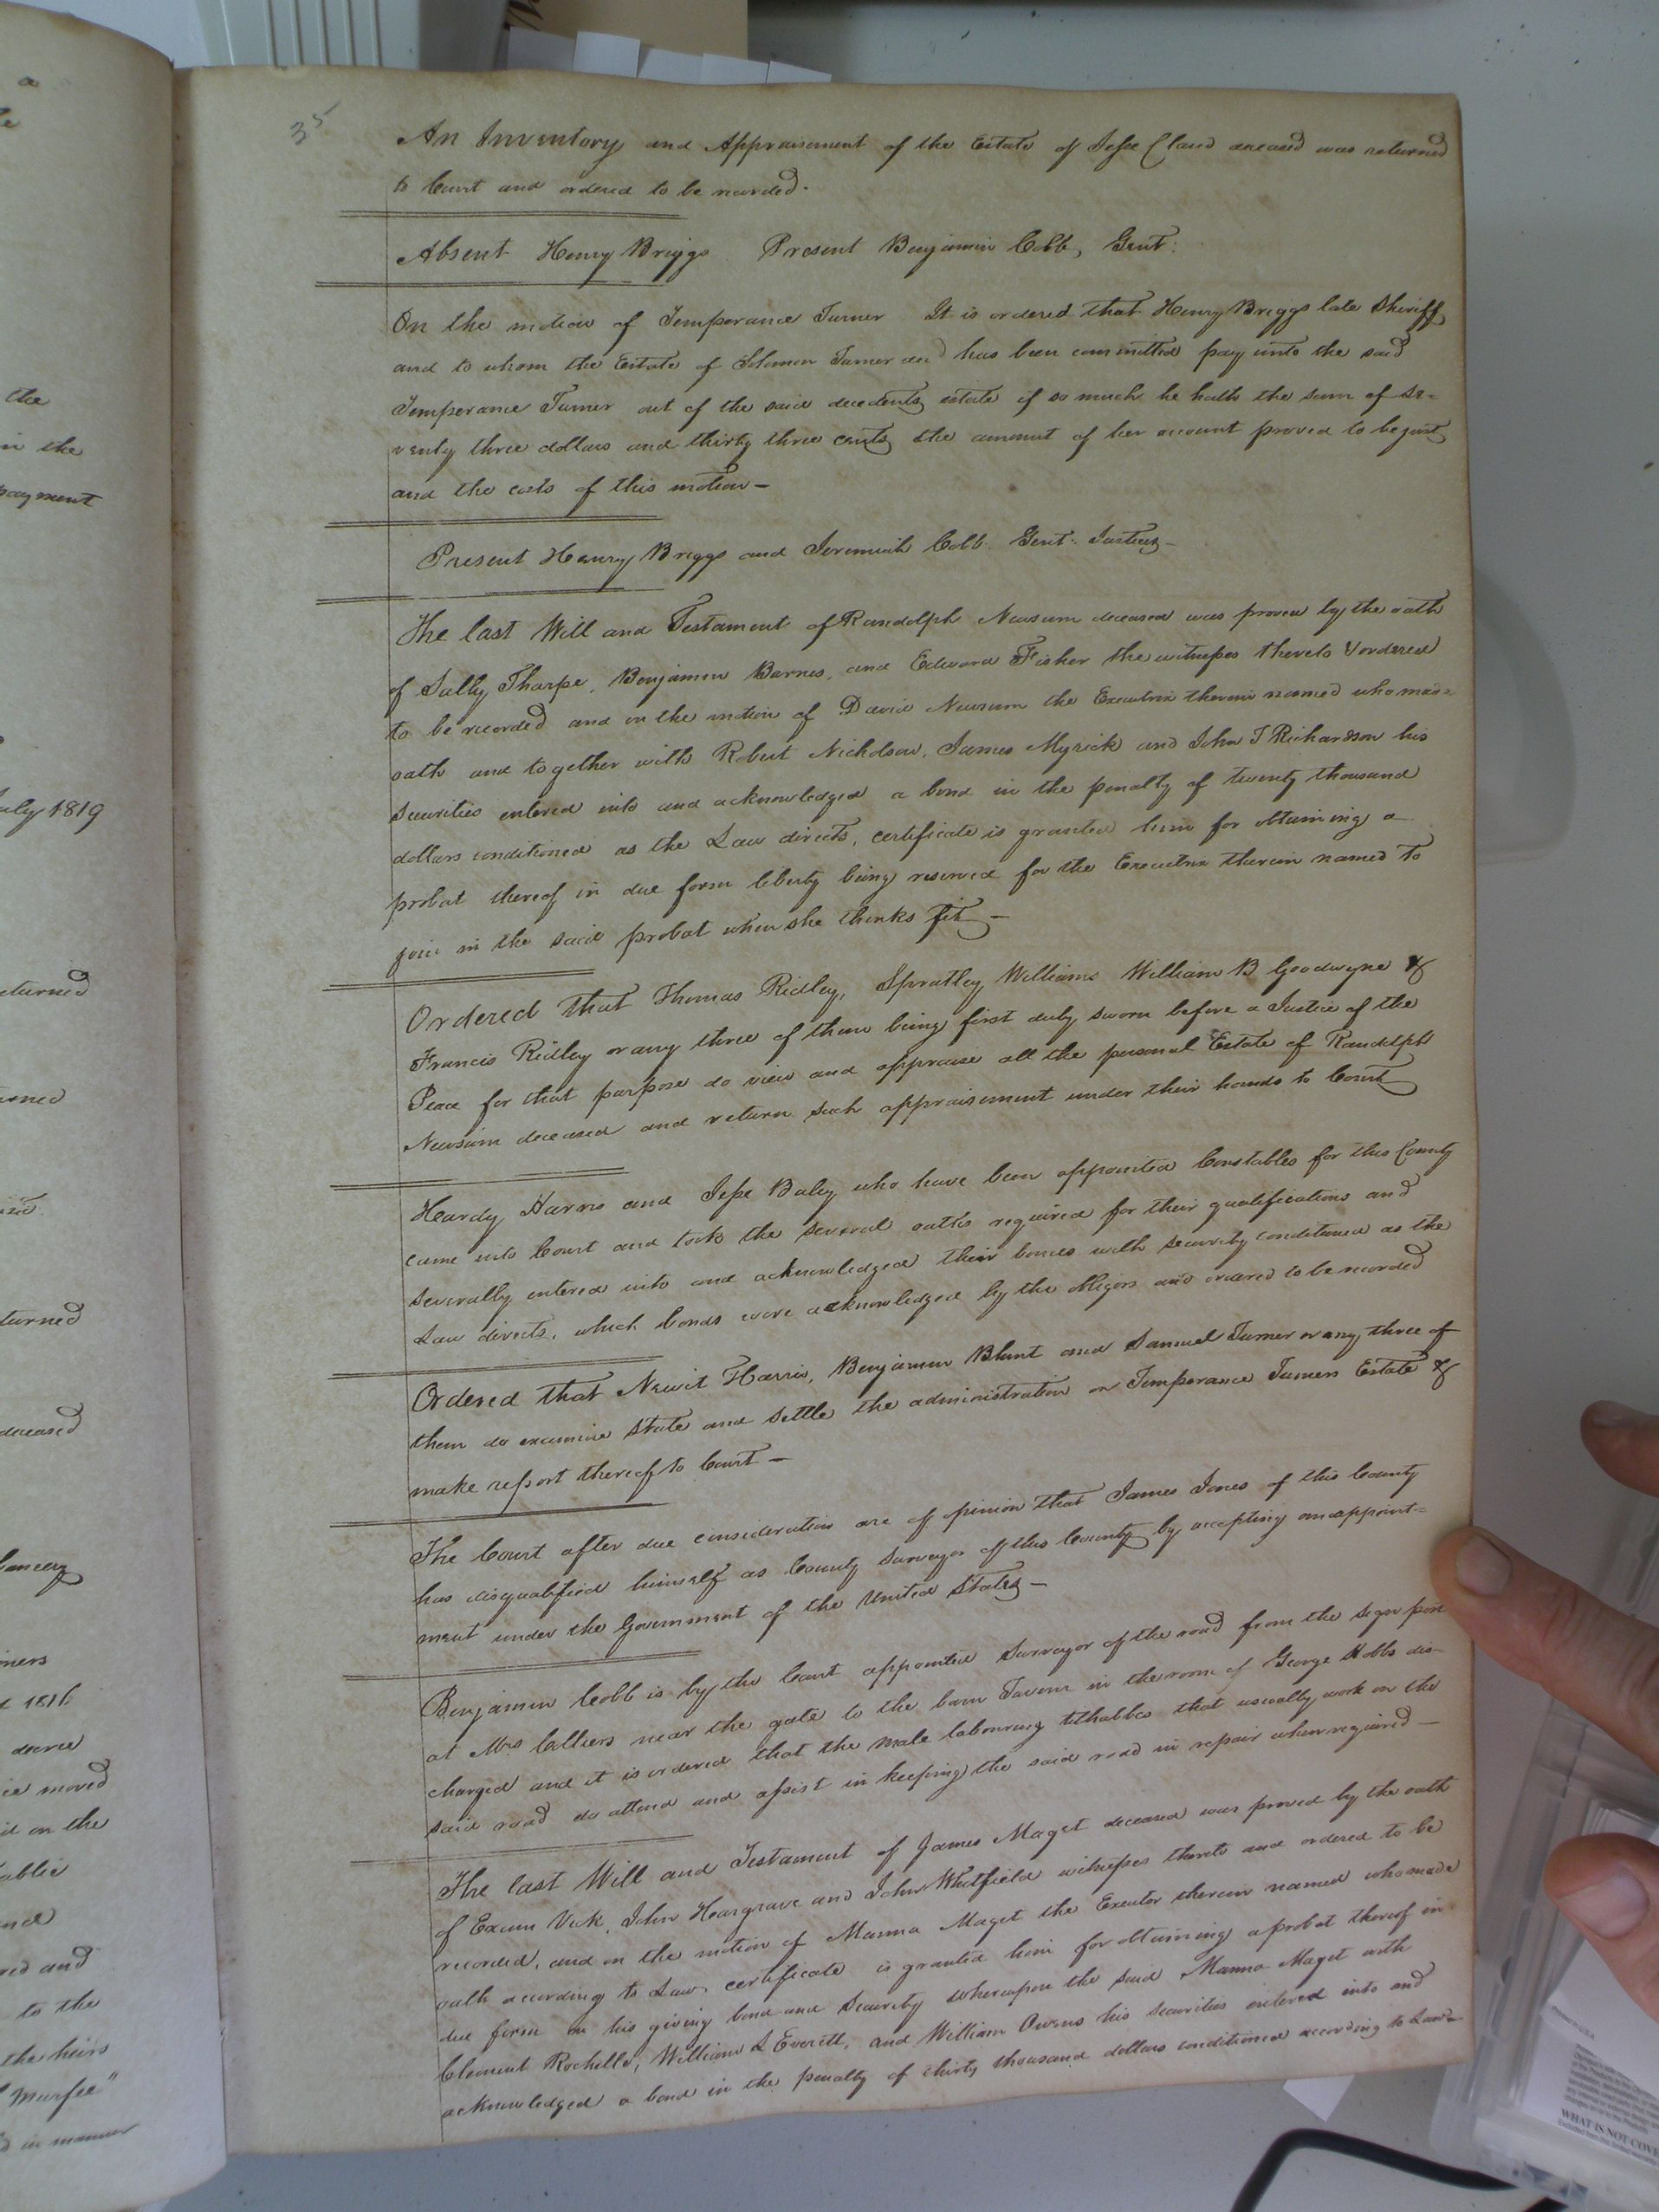 35
An Inventory and Appraisement of the Estate of Jesse Claud deceased was returned
to Court and ordered to be recorded.
Absent Henry Briggs Present Benjamin Cobb, Gent:
On the motion of Temperance Turner It is ordered that Henry Briggs late Sheriff
and to whom the Estate of Solomon Turner decd has been committed pay unto the said
Temperance Turner out of the said decedents estate if so much he hath the sum of se=
venty three dollars and thirty three cents the amount of her account proved to be just
and the costs of this motion—
Present Henry Briggs and Jeremiah Cobb Gent: Justices—
The last Will and Testament of Randolph Newsum deceased was proven by the oath
of Sally Tharpe, Benjamin Barnes, and Edward Fisher the witnesses thereto & ordered
to be recorded and on the motion of David Newsum the Executrix therein named who made
oath and together with Robert Nicholson, James Myrick and John T Richardson his
securities entered into and acknowledged a bond in the penalty of twenty thousand
dollars conditioned as the Law directs, certificate is granted him for obtaining a
probat thereof in due form liberty being reserved for the Executrix therein named to
join in the said probat when she thinks fit—
Ordered that Thomas Ridley, Spratley Williams William B Goodwyne &
Francis Ridley or any three of them being first duly sworn before a Justice of the
Peace for that purpose do view and appraise all the personal Estate of Randolph
Newsum deceased and return such appraisement under their hands to Court
Hardy Harris and Jesse Baley who have been appointed Constables for this County
came into Court and took the several oaths required for their qualifications and
severally entered into and acknowledged their bonds with security conditioned as the
Law directs, which bonds were acknowledged by the obligors and ordered to be recorded
Ordered that Newit Harris, Benjamin Blunt and Samuel Turner or any three of
them do examine state and settle the administration on Temperance Turners Estate &
make report thereof to Court—
The Court after due consideration are of opinion that James Jones of this County
has disqualified himself as County surveyor of this County by accepting an appoint=
ment under the Government of the United States—
Benjamin Cobb is by the Court appointed Surveyor of the road from the sign post
at Mrs Calliers near the gate to the barn Tavern in the room of George Hobbs dis-
charged and it is ordered that the male labouring tithables that usually work on the
said road do attend and assist in keeping the said road in repair when required—
The last Will and Testament of James Maget deceased was proved by the oath
of Exum Vick, John Hargrave and John Whitfield witnesses thereto and ordered to be
recorded, and on the motion of Manna Maget the Executor therein named who made
oath according to Law certificate is granted him for obtaining a probat thereof in
due form on his giving bond and security whereupon the said Manna Maget with
Clement Rochelle, William L Everett, and William Owens his securities entered into and
acknowledged a bond in the penalty of thirty thousand dollars conditioned according to Law
the
in the
payment
July 1819
returned
turned
deceased
1816
decree
moved
on the
and
to the
the heirs
Murfee"
in manner
WHAT IS NOT COVE